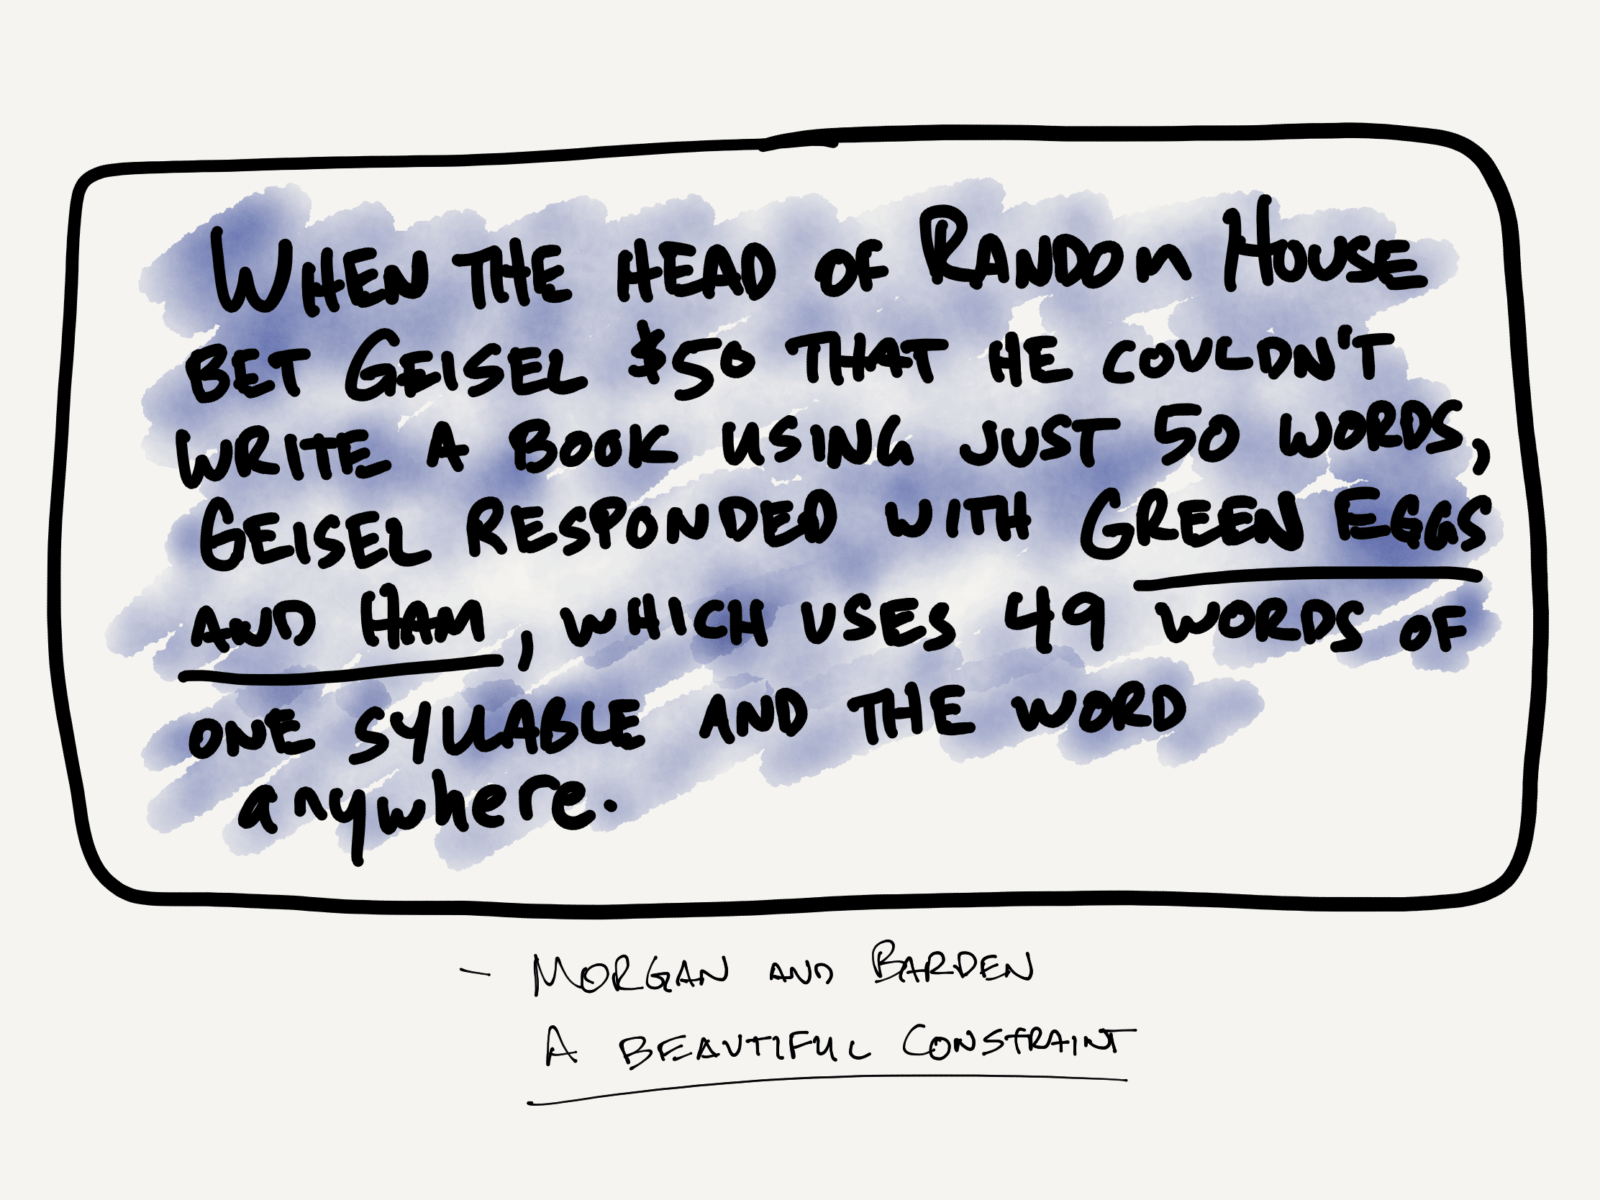 When the head of Random House
bet Geisel $50 that he couldn't
write a book using just 50 words,
Geisel responded with Green Eggs
and Ham, which uses 49 words of
one syllable and the word
anywhere.
- Morgan and Barden
A Beautiful Constraint